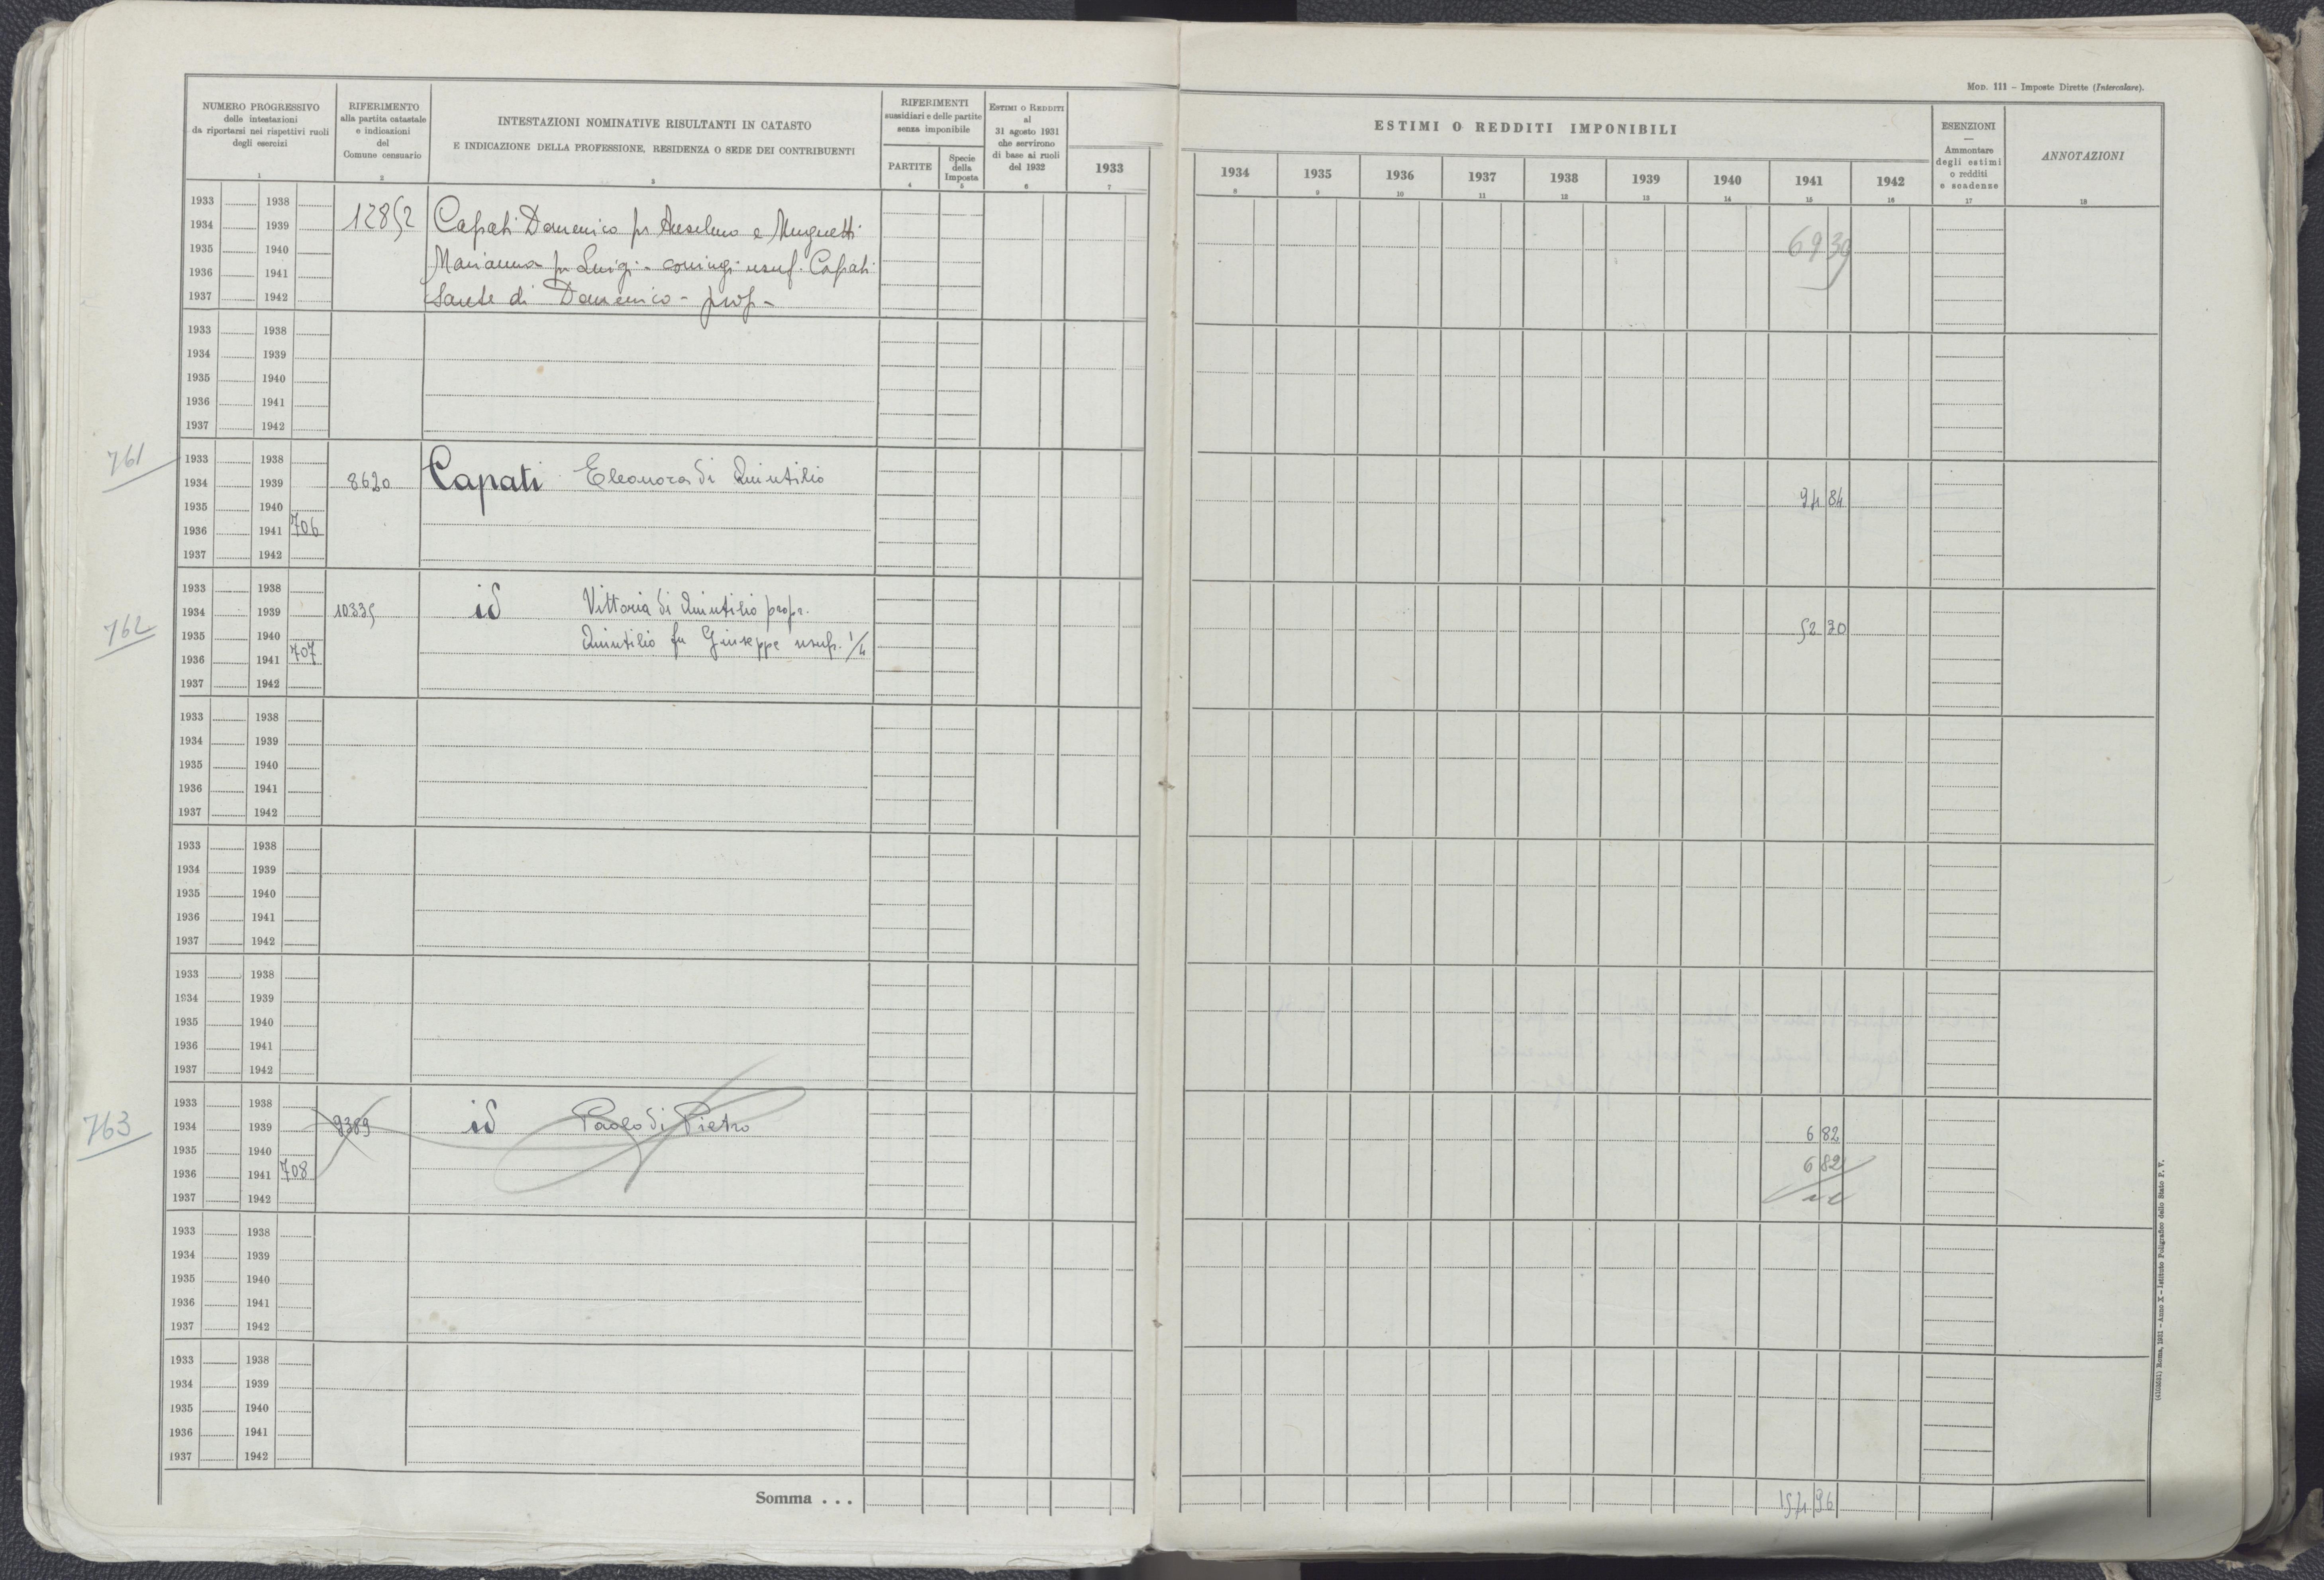 MOD. 111 – Imposte Dirette (Intercalare).
NUMERO PROGRESSIVO
delle intestazioni
da riportarsi nei rispettivi ruoli
degli esercizi
1
RIFERIMENTO
alla partita catastale
e indicazioni
del
Comune censuario
2
INTESTAZIONI NOMINATIVE RISULTANTI IN CATASTO
E INDICAZIONE DELLA PROFESSIONE, RESIDENZA O SEDE DEI CONTRIBUENTI
3
RIFERIMENTI
sussidiari e delle partite
senza imponibile
PARTITE
4
Specie
della
Imposta
5
ESTIMI O REDDITI
al
31 agosto 1931
che servirono
di base ai ruoli
del 1932
6
1933
7
ESTIMI O REDDITI IMPONIBILI
1934 1935 1936 1937 1938 1939 1940 1941 1942
8 9 10 11 12 13 14 15 16
ESENZIONI
—
Ammontare
degli estimi
o redditi
e scadenze
17
ANNOTAZIONI
18
1933 1938
1934 1939
1935 1940
1936 1941
1937 1942
12852
Capati Domenico fu Anselmo e
Marianna fu Luigi - coniugi usuf. Capati
Sante di Domenico - prop -
69 39
1933 1938
1934 1939
1935 1940
1936 1941
1937 1942
761
1933 1938
1934 1939
1935 1940
1936 1941 706
1937 1942
8620
Capati Eleonora di Quintilio
94 84
762
1933 1938
1934 1939
1935 1940
1936 1941 707
1937 1942
10335
id Vittoria di Quintilio propr.
Quintilio fu Giuseppe usuf. 1/4
52 90
1933 1938
1934 1939
1935 1940
1936 1941
1937 1942
1933 1938
1934 1939
1935 1940
1936 1941
1937 1942
1933 1938
1934 1939
1935 1940
1936 1941
1937 1942
763
1933 1938
1934 1939
1935 1940
1936 1941 708
1937 1942
9389
id Paolo di Pietro
6 82
6 82
1933 1938
1934 1939
1935 1940
1936 1941
1937 1942
1933 1938
1934 1939
1935 1940
1936 1941
1937 1942
Somma . . .
154 96
Roma, 1931 – Anno X – Istituto Poligrafico dello Stato P. V.